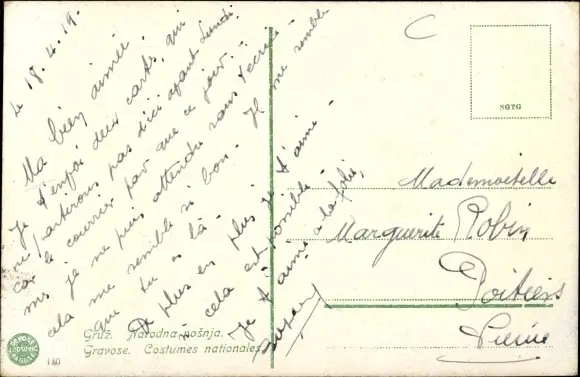 le 18.4.19.
Ma bien aimée.
Je t'envoi deux cartes, qui
ne partirons pas d'ici avant Lundi
car le courrier par que ce jour.
mais je ne puis attendre sans t'ecrire
cela me semble si bon. Il me semble
que tu es là.
De plus en plus je t'aime
si cela est possible
Je t'aime à la folie,
C
SGTG
Mademoiselle
Marguerite Robin
Poitiers
Vienne
Gruž. Narodna nošnja.
Gravose. Costumes nationales.
140